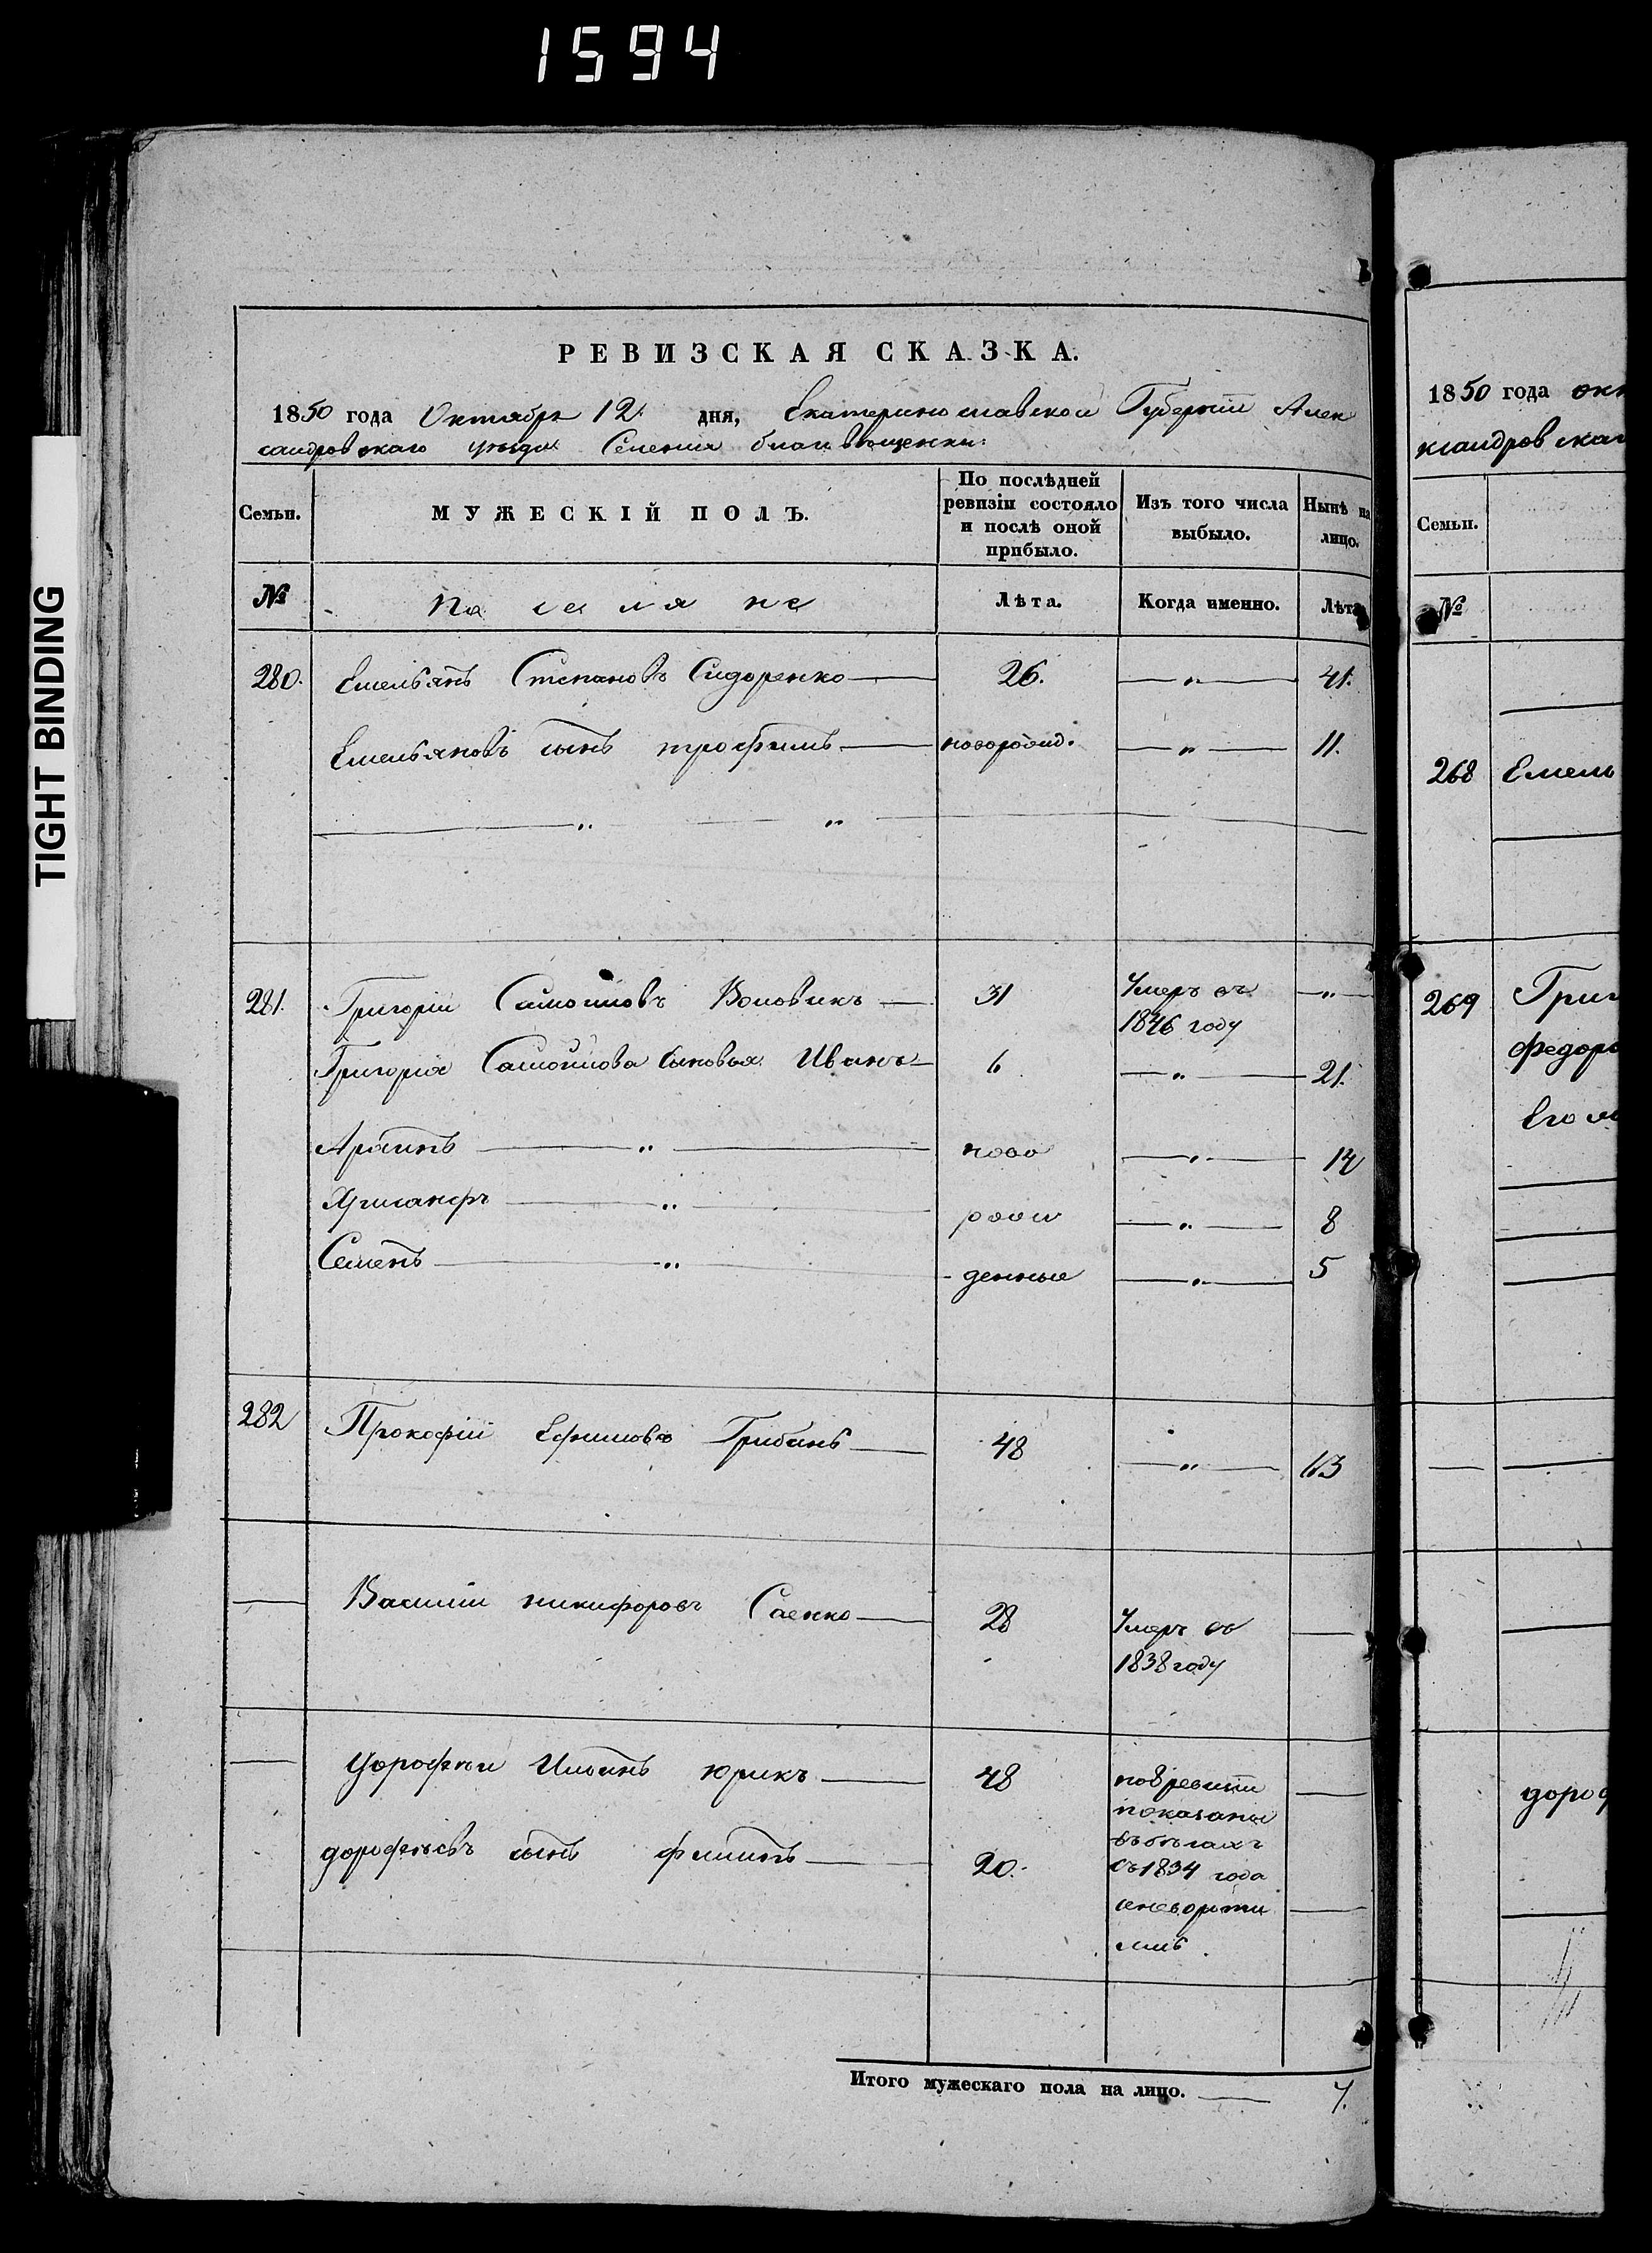 1594
TIGHT BINDING
РЕВИЗСКАЯ СКАЗКА.
1850 года Октября 12. дня, Екатеринославской Губернии Алек
сандровскаго уѣзда Селения благовѣщенки:
Семьи. МУЖЕСКІЙ ПОЛЪ. По послѣдней ревизіи состояло и послѣ оной прибыло. Изъ того числа выбыло. Нынѣ на лицо.
№ Поселяне Лѣта. Когда именно. Лѣта
280. Емельянъ Степановъ Сидоренко 26. — „ — 41.
Емельяновъ сынъ трофимъ новорожд. — „ — 11.
„ „
281. Григорій Самойловъ Воловикъ 31 Умеръ въ 1846 году — „ —
Григорія Самойлова сыновья Иванъ 6 — „ — 21.
„ ново — „ — 14
Хрисанфъ „ рож — „ — 8
Семенъ „ денные — „ — 5
282 Прокофій Ефимовъ Грибинъ 48 — „ — 63
— Василій никифоровъ Саенко 28 Умеръ въ 1838 году —
— дорофѣй Ильинъ юрикъ 48 по 8 ревизіи —
показаны
въ бѣгахъ
дорофѣевъ сынъ филипъ 20. съ 1834 года
—
Итого мужескаго пола на лицо. 7.
1850 года окт
ксандровскаг
Семьи.
№
268 Емель
269 Григ
федоро
Его
дороф